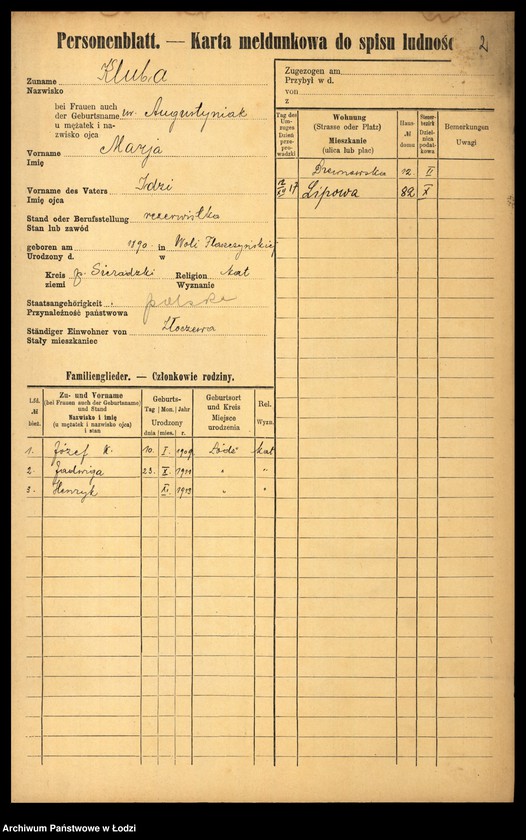 Personenblatt. — Karta meldunkowa do spisu ludnośc
2
Zuname Kluba
Nazwisko
bei Frauen auch
der Geburtsname ur. Augustyniak
u mężatek i na-
zwisko ojca
Vorname Marja
Imię
Vorname des Vaters Idzi
Imię ojca
Stand oder Berufsstellung rezerwistka
Stan lub zawód
geboren am 1890 in Woli Flaszczyńskiej
Urodzony d. w
Kreis p. Sieradzki Religion kat
ziemi Wyznanie
Staatsangehörigkeit polska
Przynależność państwowa
Ständiger Einwohner von Złoczewa
Stały mieszkaniec
Zugezogen am
Przybył w d.
von
z
Tag des Um-zuges Dzień prze-prowadzki
Wohnung (Strasse oder Platz) Mieszkanie (ulica lub plac)
Haus- № domu
Bemerkungen Uwagi
12 II
12/XI 17 Lipowa 82 X
Familienglieder. — Członkowie rodziny.
Lfd. № bież.
Zu- und Vorname (bei Frauen auch der Geburtsname) und Stand Nazwisko i imię (u mężatek i nazwisko ojca) i stan
Geburts- Tag Mon. Jahr Urodzony dnia mies. r.
Geburtsort und Kreis Miejsce urodzenia
Rel. Wyzn.
1. Józef K. 10. I. 1909 Łódź kat
2. Jadwiga 23. X. 1911 " "
3. Henryk XI. 1913 " "
Archiwum Państwowe w Łodzi